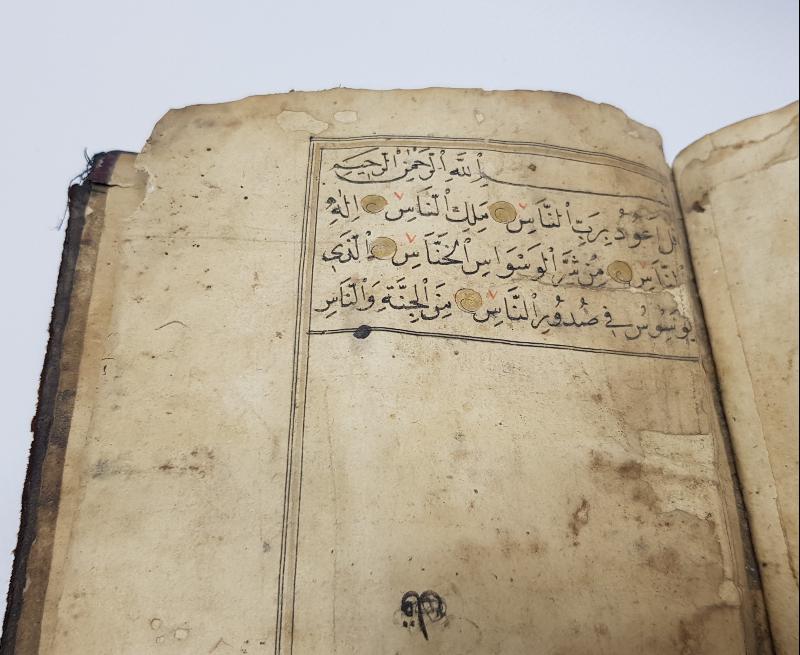 بِسْمِ اللَّهِ الرَّحْمٰنِ الرَّحِيمِ
قُلْ اَعُوذُ بِرَبِّ النَّاسِ مَلِكِ النَّاسِ اِلٰهِ
النَّاسِ مِنْ شَرِّ الْوَسْوَاسِ الْخَنَّاسِ الَّذِي
يُوَسْوِسُ فِي صُدُورِ النَّاسِ مِنَ الْجِنَّةِ وَالنَّاسِ